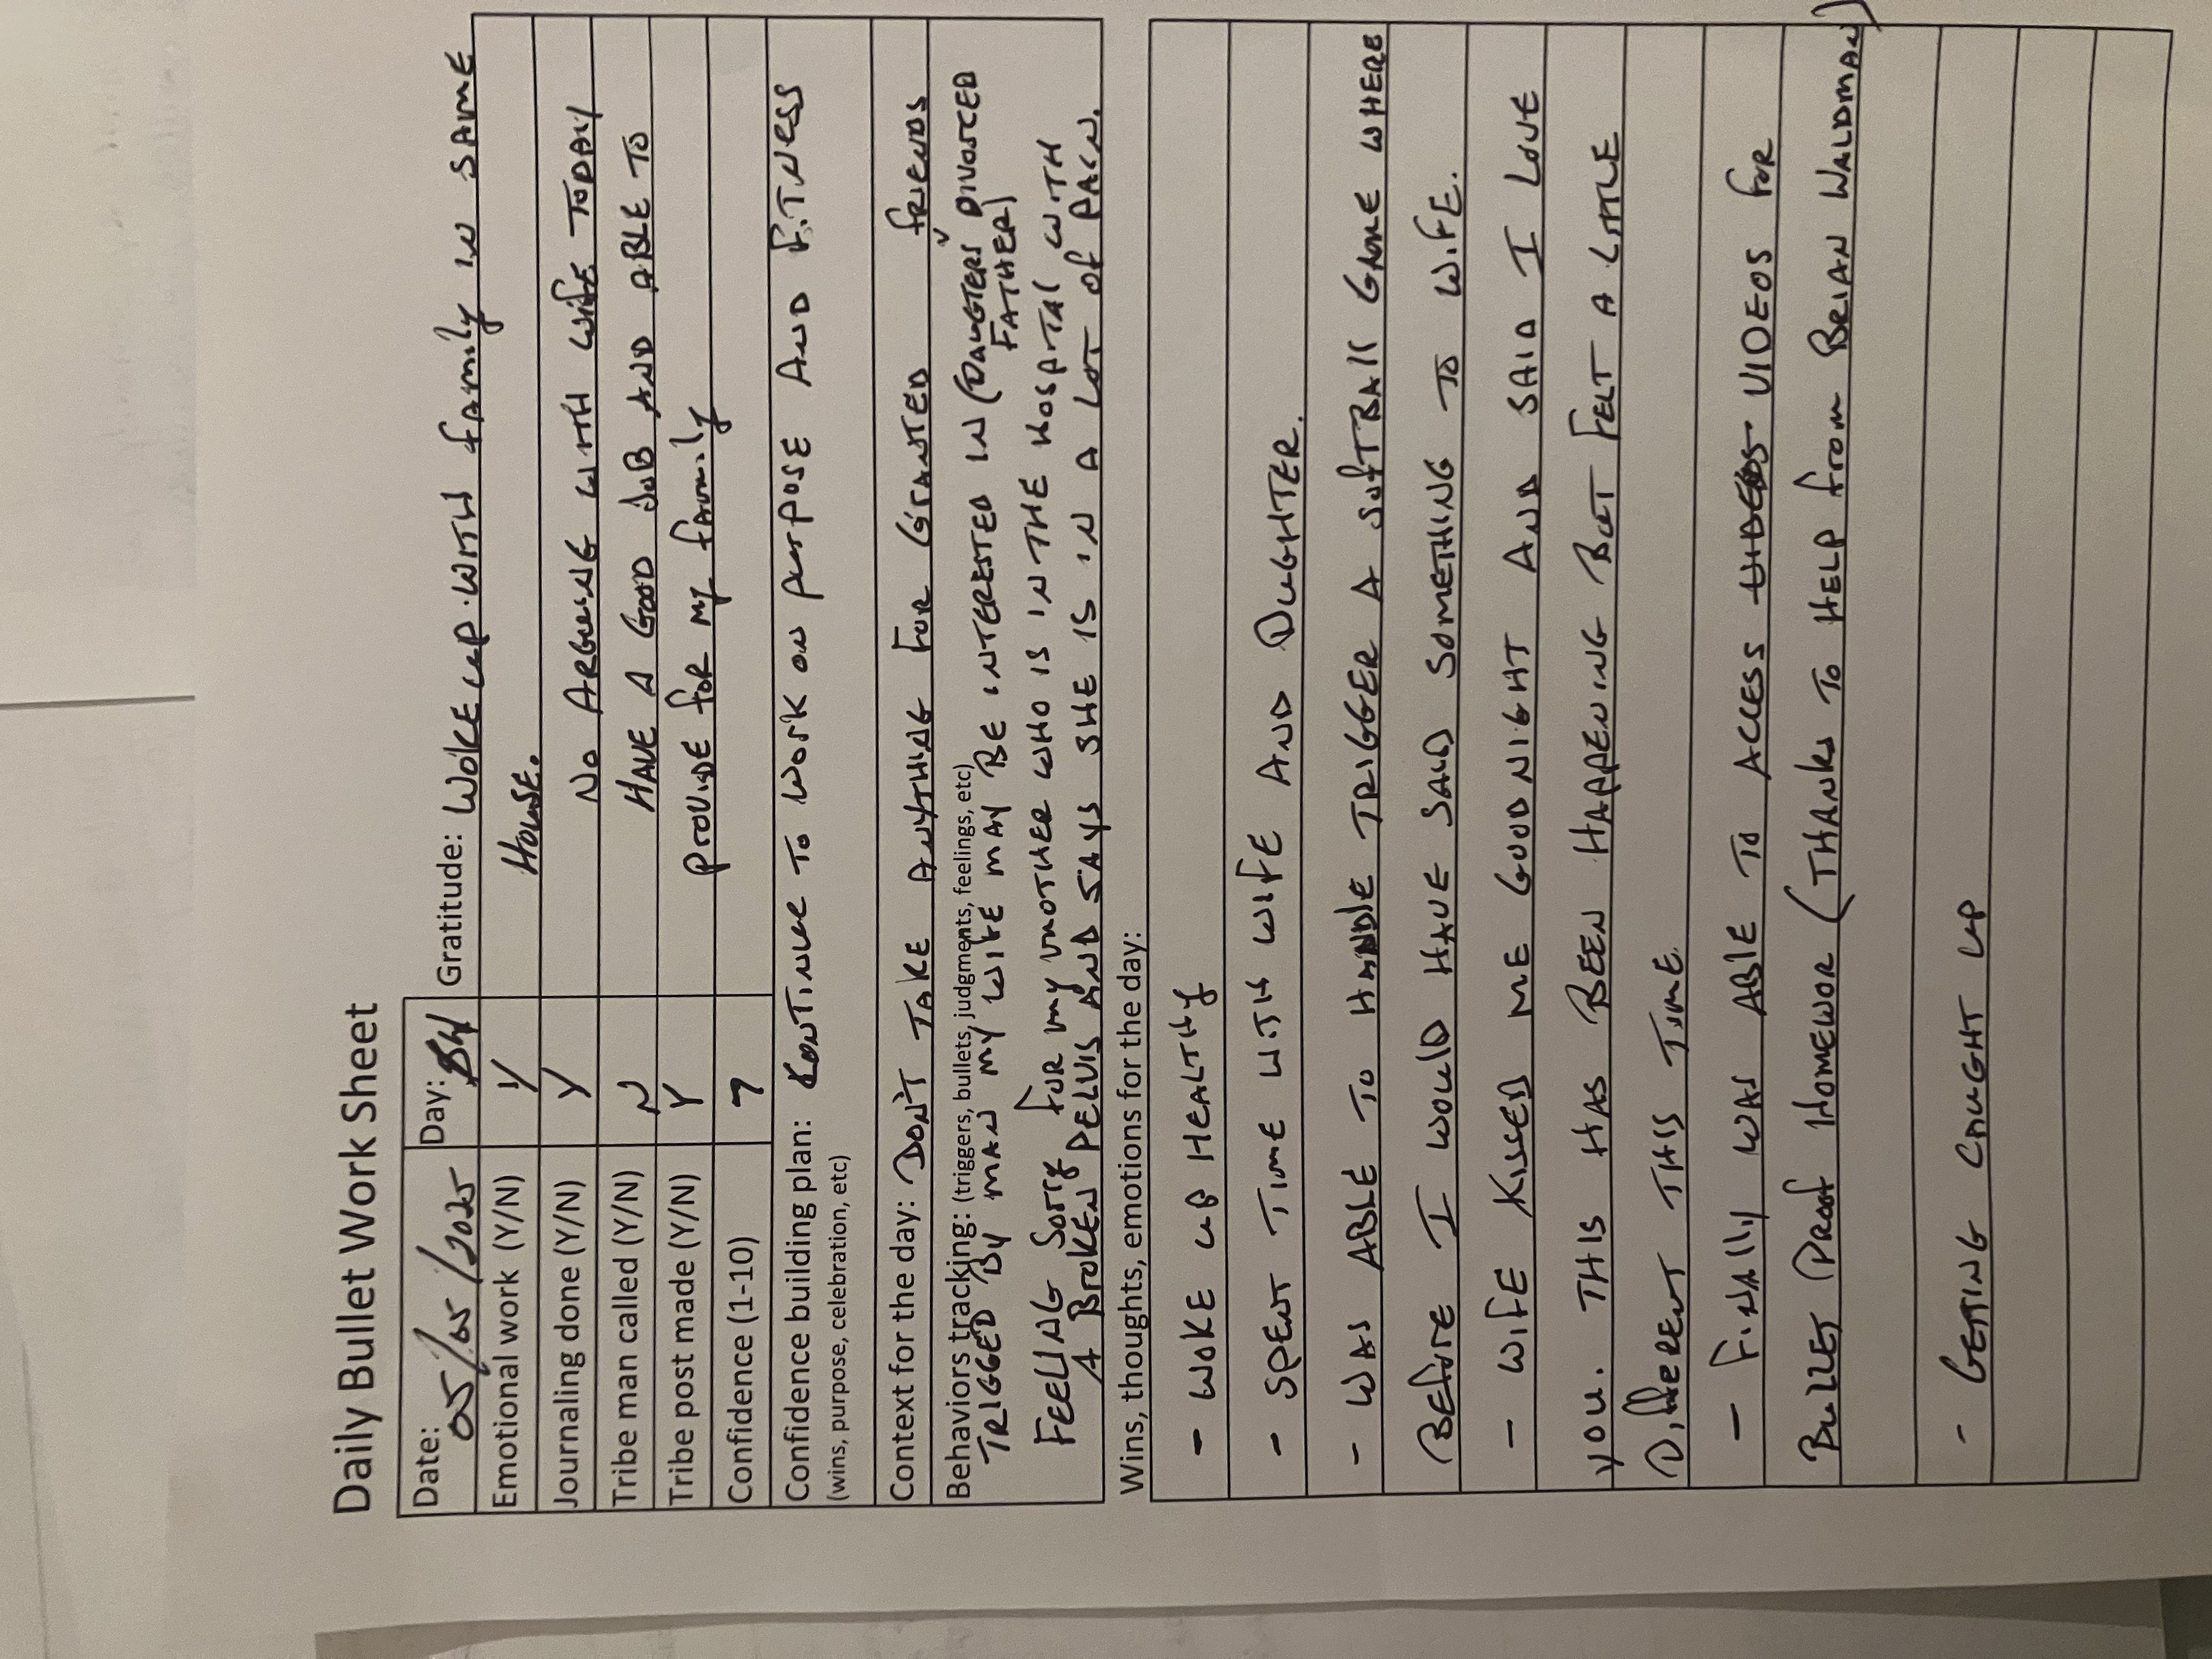 Daily Bullet Work Sheet
Date: 05/05/2025 Day: 84 Gratitude: WOKE up WITH family IN SAME
Emotional work (Y/N) Y HOUSE.
Journaling done (Y/N) Y NO ARGUING WITH WIFE TODAY
Tribe man called (Y/N) N HAVE A GOOD JOB AND ABLE TO
Tribe post made (Y/N) Y PROVIDE FOR MY family
Confidence (1-10) 7
Confidence building plan: CONTINUE TO WORK ON purpose AND FITNESS
(wins, purpose, celebration, etc)
Context for the day: DON'T TAKE ANYTHING FOR GRANTED
Behaviors tracking: (triggers, bullets, judgments, feelings, etc) friends
TRIGGED By MAN MY WIFE MAY BE INTERESTED IN (DAUGTERS DIVORCED
FATHER)
FEELING SORRY FOR my MOTHER WHO IS IN THE HOSPITAL WITH
A BROKEN PELVIS AND SAYS SHE IS IN A LOT OF PAIN.
Wins, thoughts, emotions for the day:
- WOKE UP HEALTHY
- SPENT TIME WITH WIFE AND DUGHTER.
- WAS ABLE TO HANDLE TRIGGER A SOFTBALL GAME WHERE
BEFORE I WOULD HAVE SAID SOMETHING TO WIFE.
- WIFE KISSED ME GOODNIGHT AND SAID I LOVE
YOU. THIS HAS BEEN HAPPENING BUT FELT A LITTLE
DIFFERENT THIS TIME.
- FINALLY WAS ABLE TO ACCESS VIDEOS FOR
BULLET PROOF HOMEWORK (THANKS TO HELP from BRIAN WALDMAN)
- GETTING CAUGHT UP